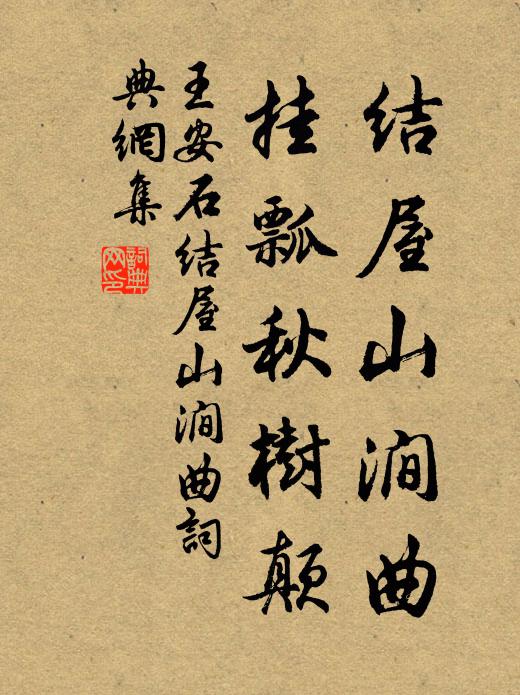 结屋山涧曲
挂瓢秋樹颠
王安石结屋山涧曲詞
典網集
詞典
网印